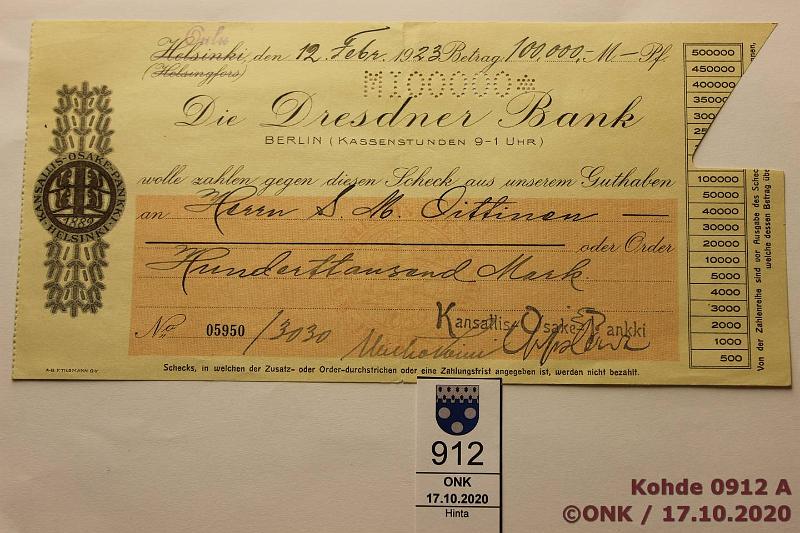 Oulu
Helsinki, den 12 Febr. 1923 Betrag 100,000,- M. - Pf.
(Helsingfors)
M100000*
Die Dresdner Bank
BERLIN (KASSENSTUNDEN 9-1 UHR)
wolle zahlen gegen diesen Scheck aus unserem Guthaben
an Herrn S. M. Oittinen —
oder Order
Hunderttausend Mark.
KANSALLIS-OSAKE-PANKKI
1889
HELSINKI
No. 05950 /3030
Kansallis-Osake-Pankki
A-B. F. TILGMANN O-Y
Schecks, in welchen der Zusatz- oder Order-durchstrichen oder eine Zahlungsfrist angegeben ist, werden nicht bezahlt.
500000
450000
400000
100000
50000
40000
30000
20000
10000
5000
4000
3000
2000
1000
500
Von der Zahlenreihe sind vor Ausgabe des Schec
welche dessen Betrag übe
912
ONK
17.10.2020
Hinta
Kohde 0912 A
©ONK / 17.10.2020